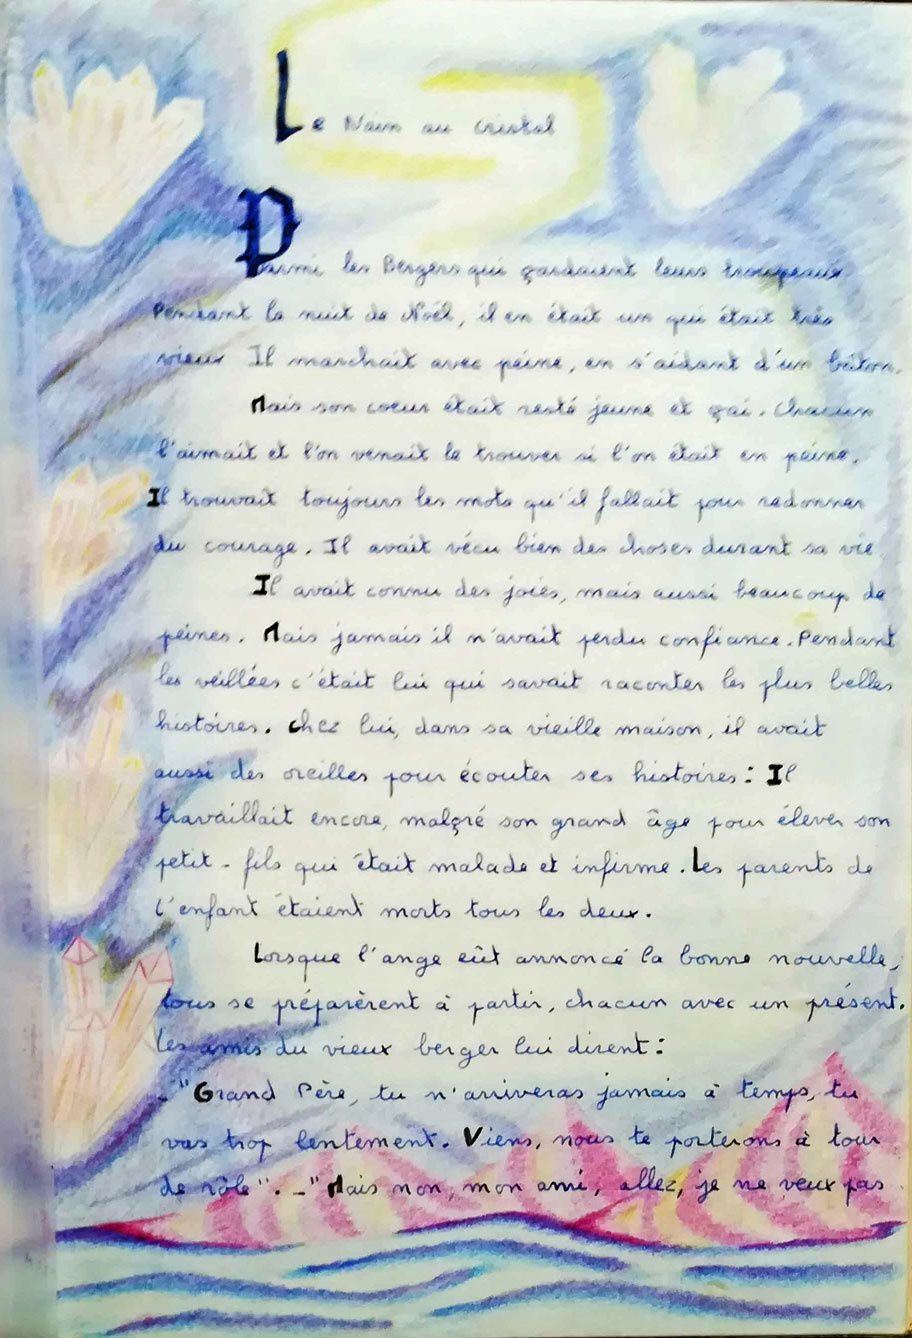 Le Nain au cristal
Parmi les Bergers qui gardaient leurs troupeaux
Pendant la nuit de Noël, il en était un qui était très
vieux Il marchait avec peine, en s'aidant d'un bâton.
Mais son coeur était resté jeune et gai. Chacun
l'aimait et l'on venait le trouver si l'on était en peine.
Il trouvait toujours les mots qu'il fallait pour redonner
du courage. Il avait vécu bien des choses durant sa vie
Il avait connu des joies, mais aussi beaucoup de
peines. Mais jamais il n'avait perdu confiance. Pendant
les veillées c'était lui qui savait raconter les plus belles
histoires. Chez lui, dans sa vieille maison, il avait
aussi des oreilles pour écouter ses histoires : Il
travaillait encore, malgré son grand âge pour élever son
petit-fils qui était malade et infirme. Les parents de
l'enfant étaient morts tous les deux.
Lorsque l'ange eût annoncé la bonne nouvelle,
tous se préparèrent à partir, chacun avec un présent.
Les amis du vieux berger lui dirent :
- "Grand Père, tu n'arriveras jamais à temps, tu
vas trop lentement. Viens, nous te porterons à tour
de rôle". - "Mais non, mon ami, allez, je ne veux pas